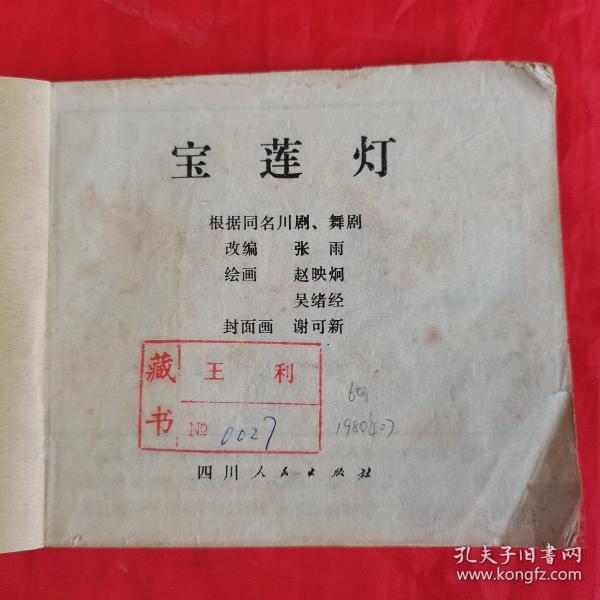 宝莲灯
根据同名川剧、舞剧
改编 张雨
绘画 赵映炯
吴绪经
封面画 谢可新
藏书
王利
№ 0027
四川人民出版社
孔夫子旧书网
www.kongfz.com